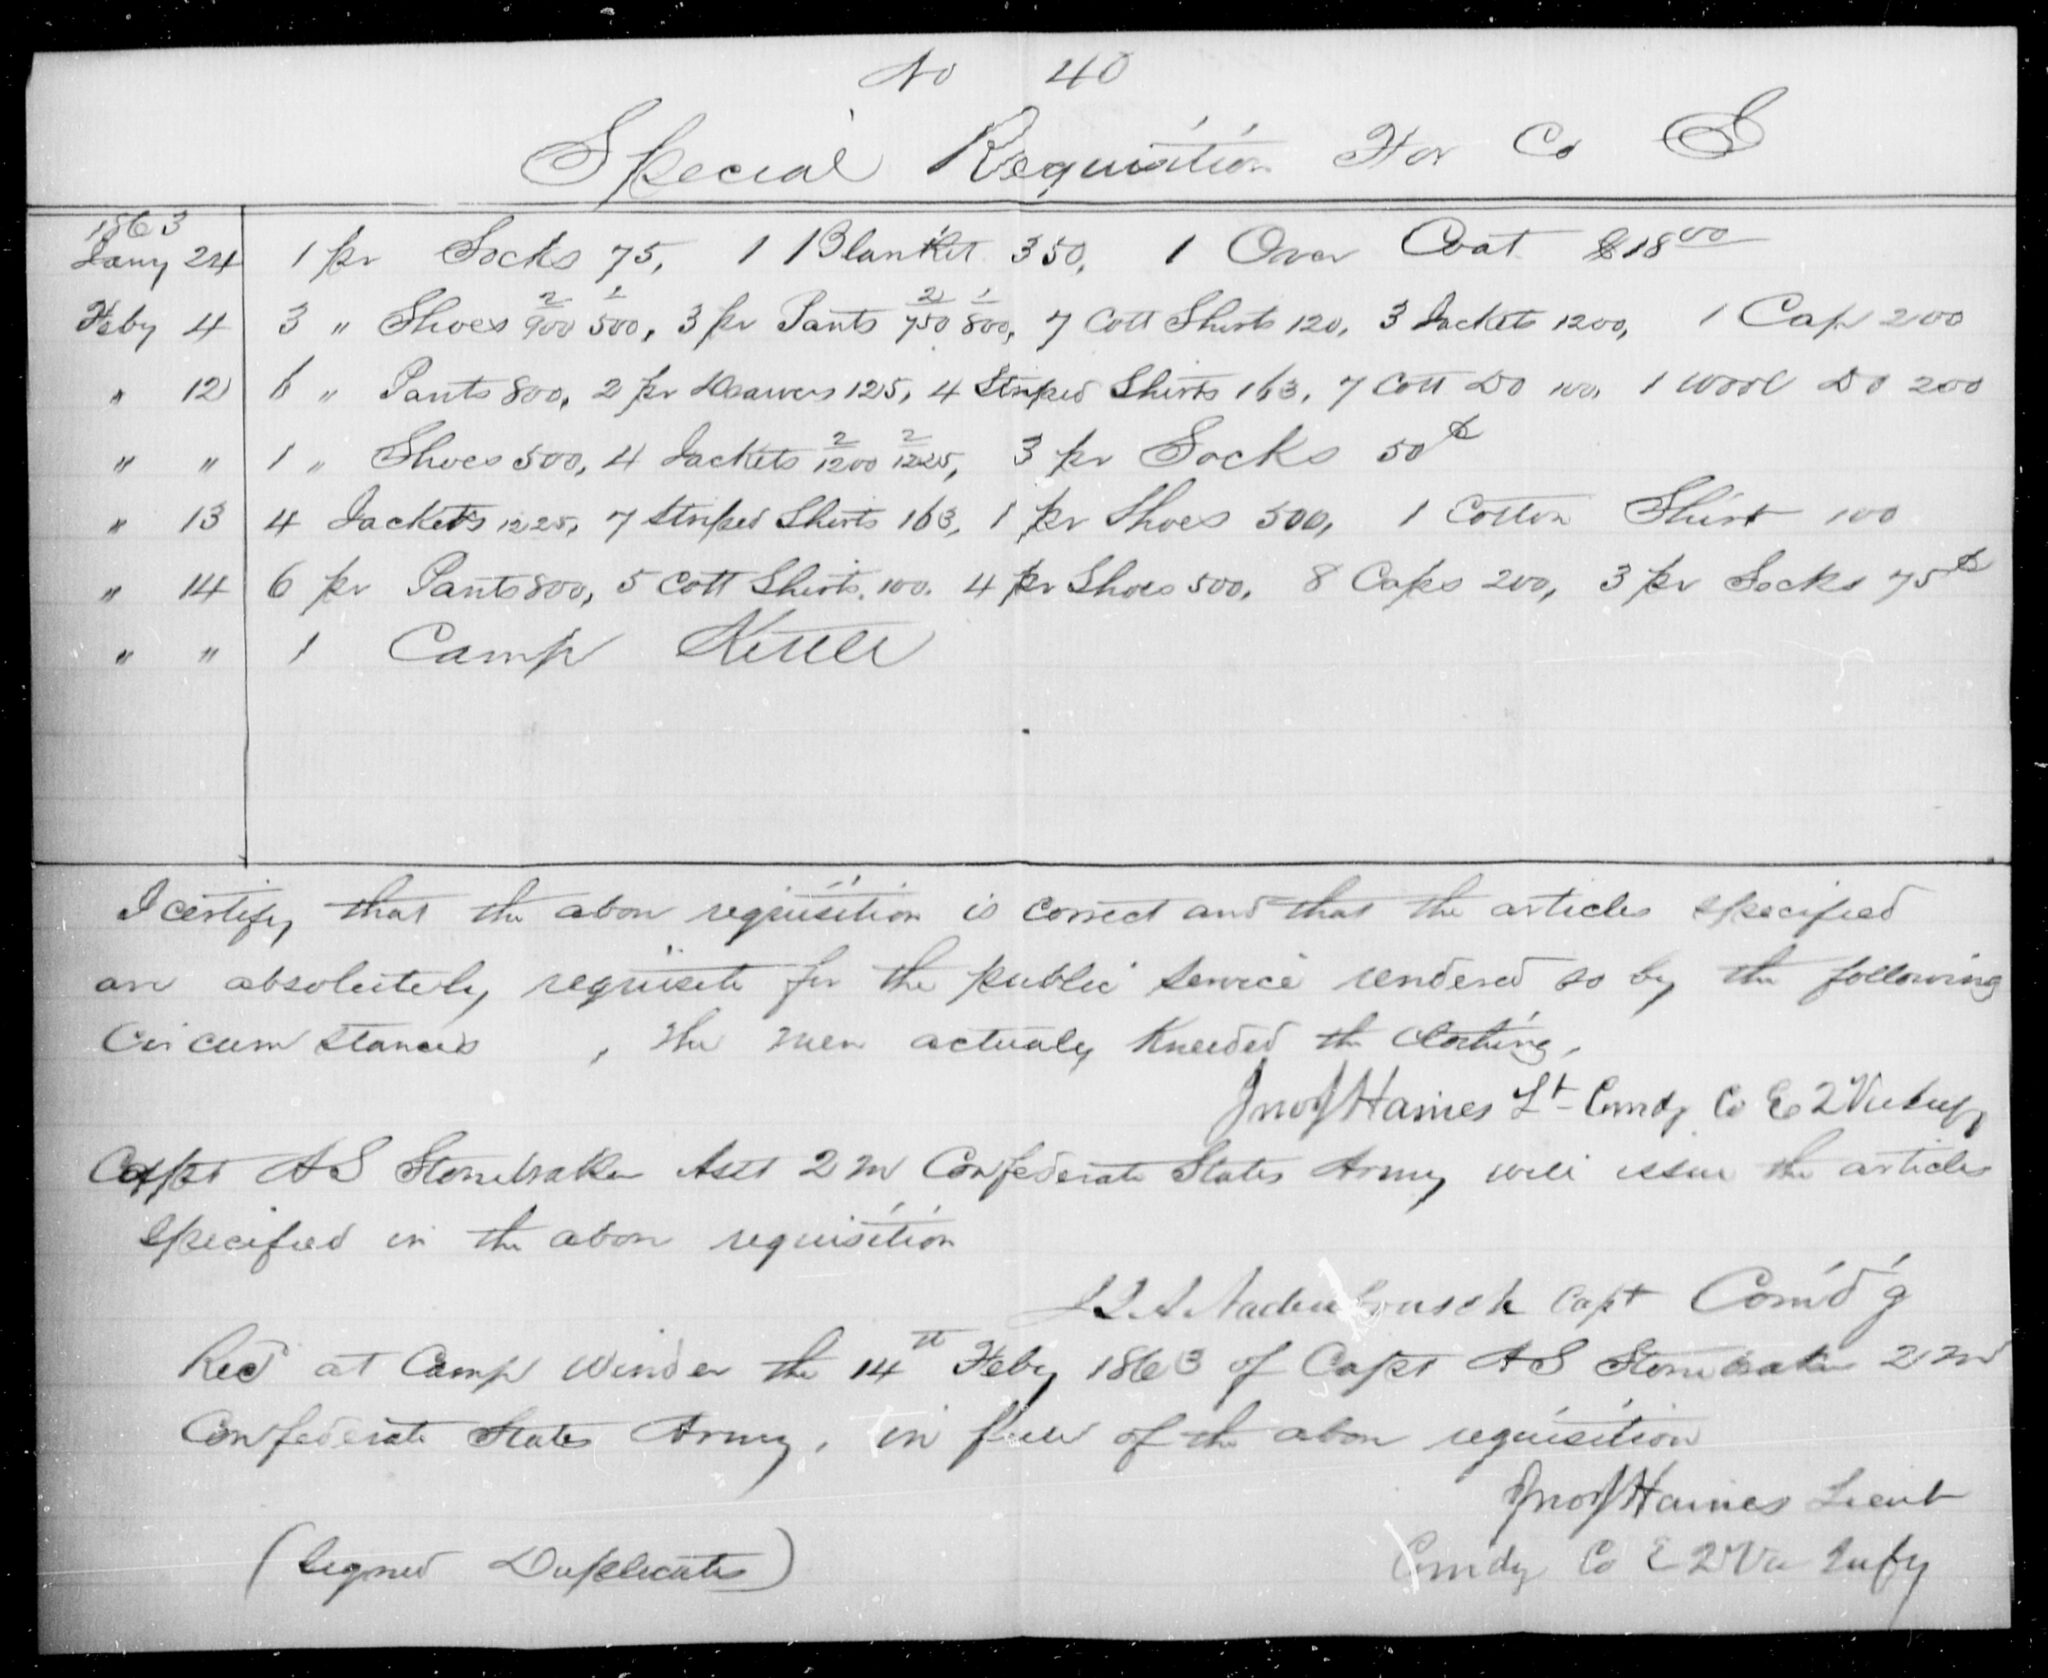 No 40
Special Requisition For Co E
1863
Jany 24 1 pr Socks 75, 1 Blanket 350, 1 Over Coat $18 00
Feby 4 3 " Shoes 2/900 1/500, 3 pr Pants 2/750 1/800, 7 Cott Shirts 120, 3 Jackets 1200, 1 Cap 200
" 12 6 " Pants 800, 2 pr Drawers 125, 4 Striped Shirts 163, 7 Cott Do 100, 1 Wool Do 200
" " 1 " Shoes 500, 4 Jackets 2/1200 2/1225, 3 pr Socks 50¢
" 13 4 Jackets 1225, 7 Striped Shirts 163, 1 pr Shoes 500, 1 Cotton Shirt 100
" 14 6 pr Pants 800, 5 Cott Shirts 100. 4 pr Shoes 500, 8 Caps 200, 3 pr Socks 75¢
" " 1 Camp Kettle
I certify that the above requisition is correct and that the articles specified
are absolutely requisite for the public service rendered so by the following
Circumstances , the men actualy kneeded the Clothing,
Jno J Haines Lt Comdg Co E 2 Va Infy
Capt A S Stonebraker Asst 2 M Confederate States Army will issue the articles
specified in the above requisition
J Q A Nadenbousch Capt Com'd'g
Recd at Camp Winder the 14th Feby 1863 of Capt A S Stonebraker 2 M
Confederate States Army, in full of the above requisition
Jno J Haines Lieut
Comdg Co E 2 Va Infy
(Signed Duplicates)